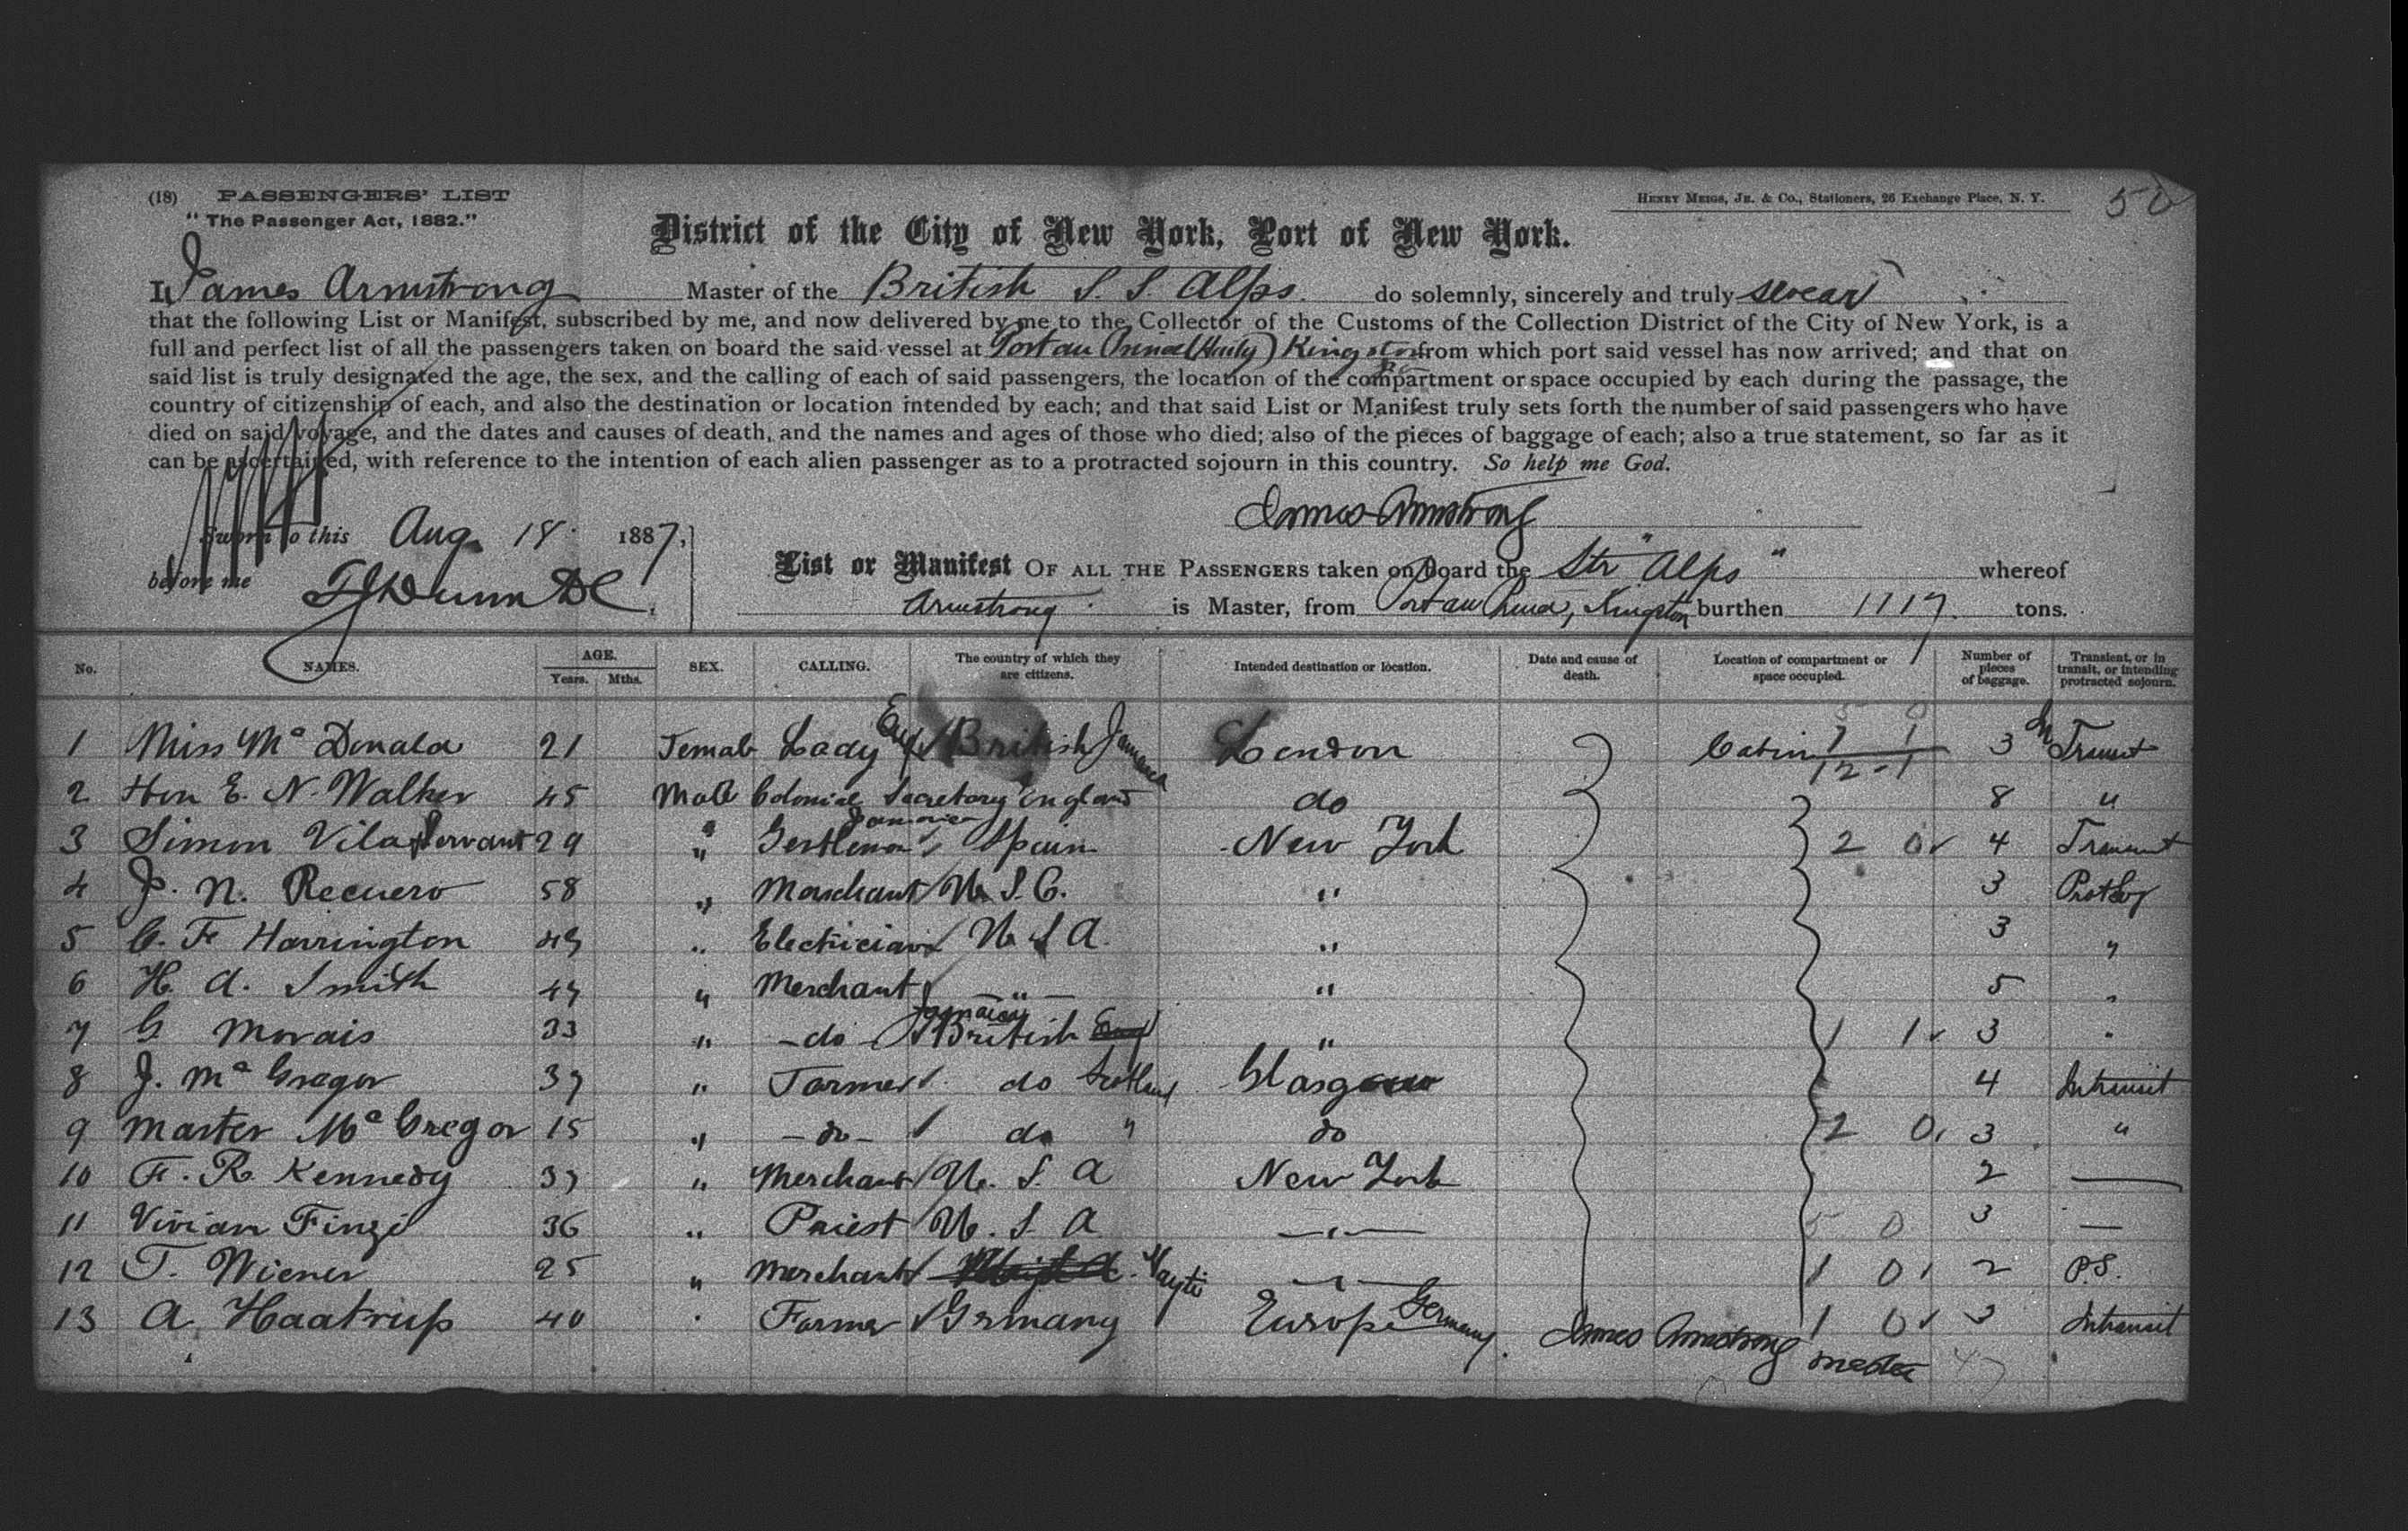 (18) PASSENGERS' LIST
HENRY MEIGS, JR. & Co., Stationers, 26 Exchange Place, N. Y.
50
"The Passenger Act, 1882."
District of the City of New York, Port of New York.
I, James Armstrong Master of the British S. S. Alps. do solemnly, sincerely and truly swear
that the following List or Manifest, subscribed by me, and now delivered by me to the Collector of the Customs of the Collection District of the City of New York, is a
full and perfect list of all the passengers taken on board the said vessel at Port au Prince (Hayty) Kingston from which port said vessel has now arrived; and that on
said list is truly designated the age, the sex, and the calling of each of said passengers, the location of the compartment or space occupied by each during the passage, the
country of citizenship of each, and also the destination or location intended by each; and that said List or Manifest truly sets forth the number of said passengers who have
died on said voyage, and the dates and causes of death, and the names and ages of those who died; also of the pieces of baggage of each; also a true statement, so far as it
can be ascertained, with reference to the intention of each alien passenger as to a protracted sojourn in this country. So help me God.
James Armstrong
Sworn to this Aug. 18 1887,
before me T J Dunn DC
List or Manifest OF ALL THE PASSENGERS taken on board the Str "Alps" whereof
Armstrong is Master, from Port au Prince, Kingston burthen 1117 tons.
No. NAMES. AGE. Years. Mths. SEX. CALLING. The country of which they are citizens. Intended destination or location. Date and cause of death. Location of compartment or space occupied. Number of pieces of baggage. Transient, or in transit, or intending protracted sojourn.
1 Miss Mc Donald 21 Female Lady Eng British Jamaica London Cabin 7 1 3 In Transit
12-1
2 Hon E. N. Walker 45 Male Colonial Secretary England do 8 "
Jamaica
3 Simon Vila Servant 29 " Gentleman Spain New York 2 0 4 Transit
4 J. N. Recuero 58 " Merchant U. S. C. " 3 Prot Soj
5 C. F Harrington 49 " Electrician U S A. " 3 "
6 H. A. Smith 49 " Merchant " " 5 "
Jamaica
7 G Morais 33 " do British Eng " 1 1 3 "
8 J. Mc Gregor 37 " Farmer do Scotland Glasgow 4 Intransit
9 Master Mc Gregor 15 " do do " do 2 0 3 "
10 F. R. Kennedy 37 " Merchant U. S. A New York 2 —
11 Vivian Finzi 36 " Priest U. S. A — " — 5 0 3 —
12 T. Wiener 25 " Merchant Hayti — " — 1 0 2 P.S.
13 A. Haatrup 40 " Farmer Germany Europe Germany 1 0 3 Intransit
James Armstrong
master
47